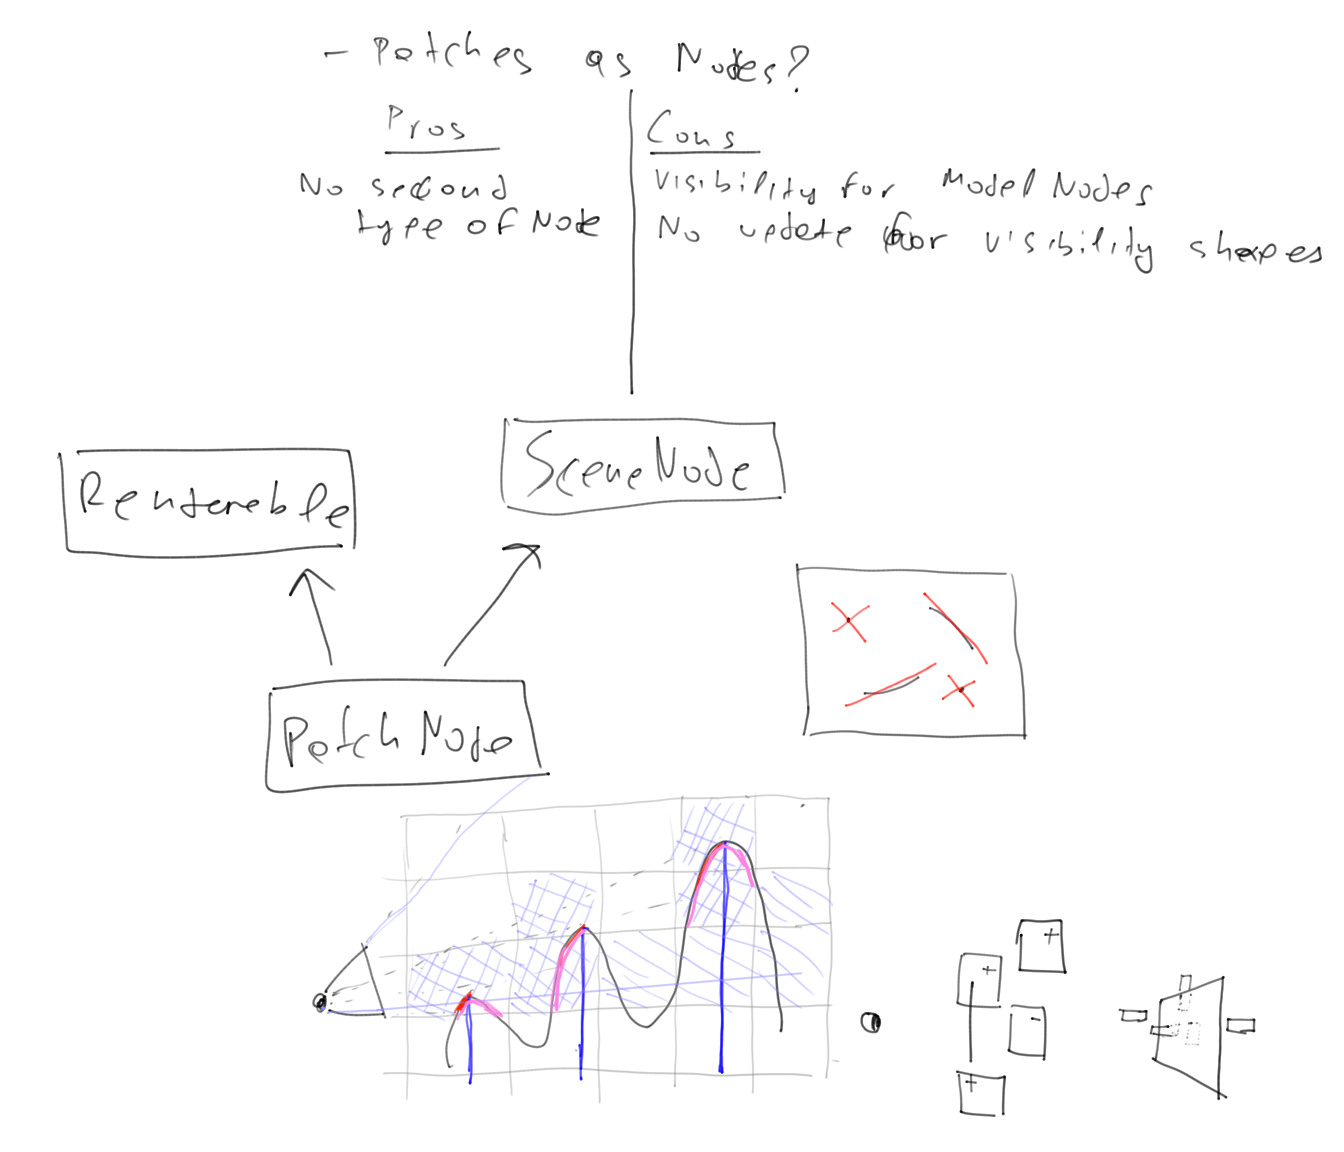 - Patches as Nodes?
Pros
Cons
No second
type of Node
Visibility for Model Nodes
No update for visibility shapes
Renderable
SceneNode
PatchNode
+
+
-
+